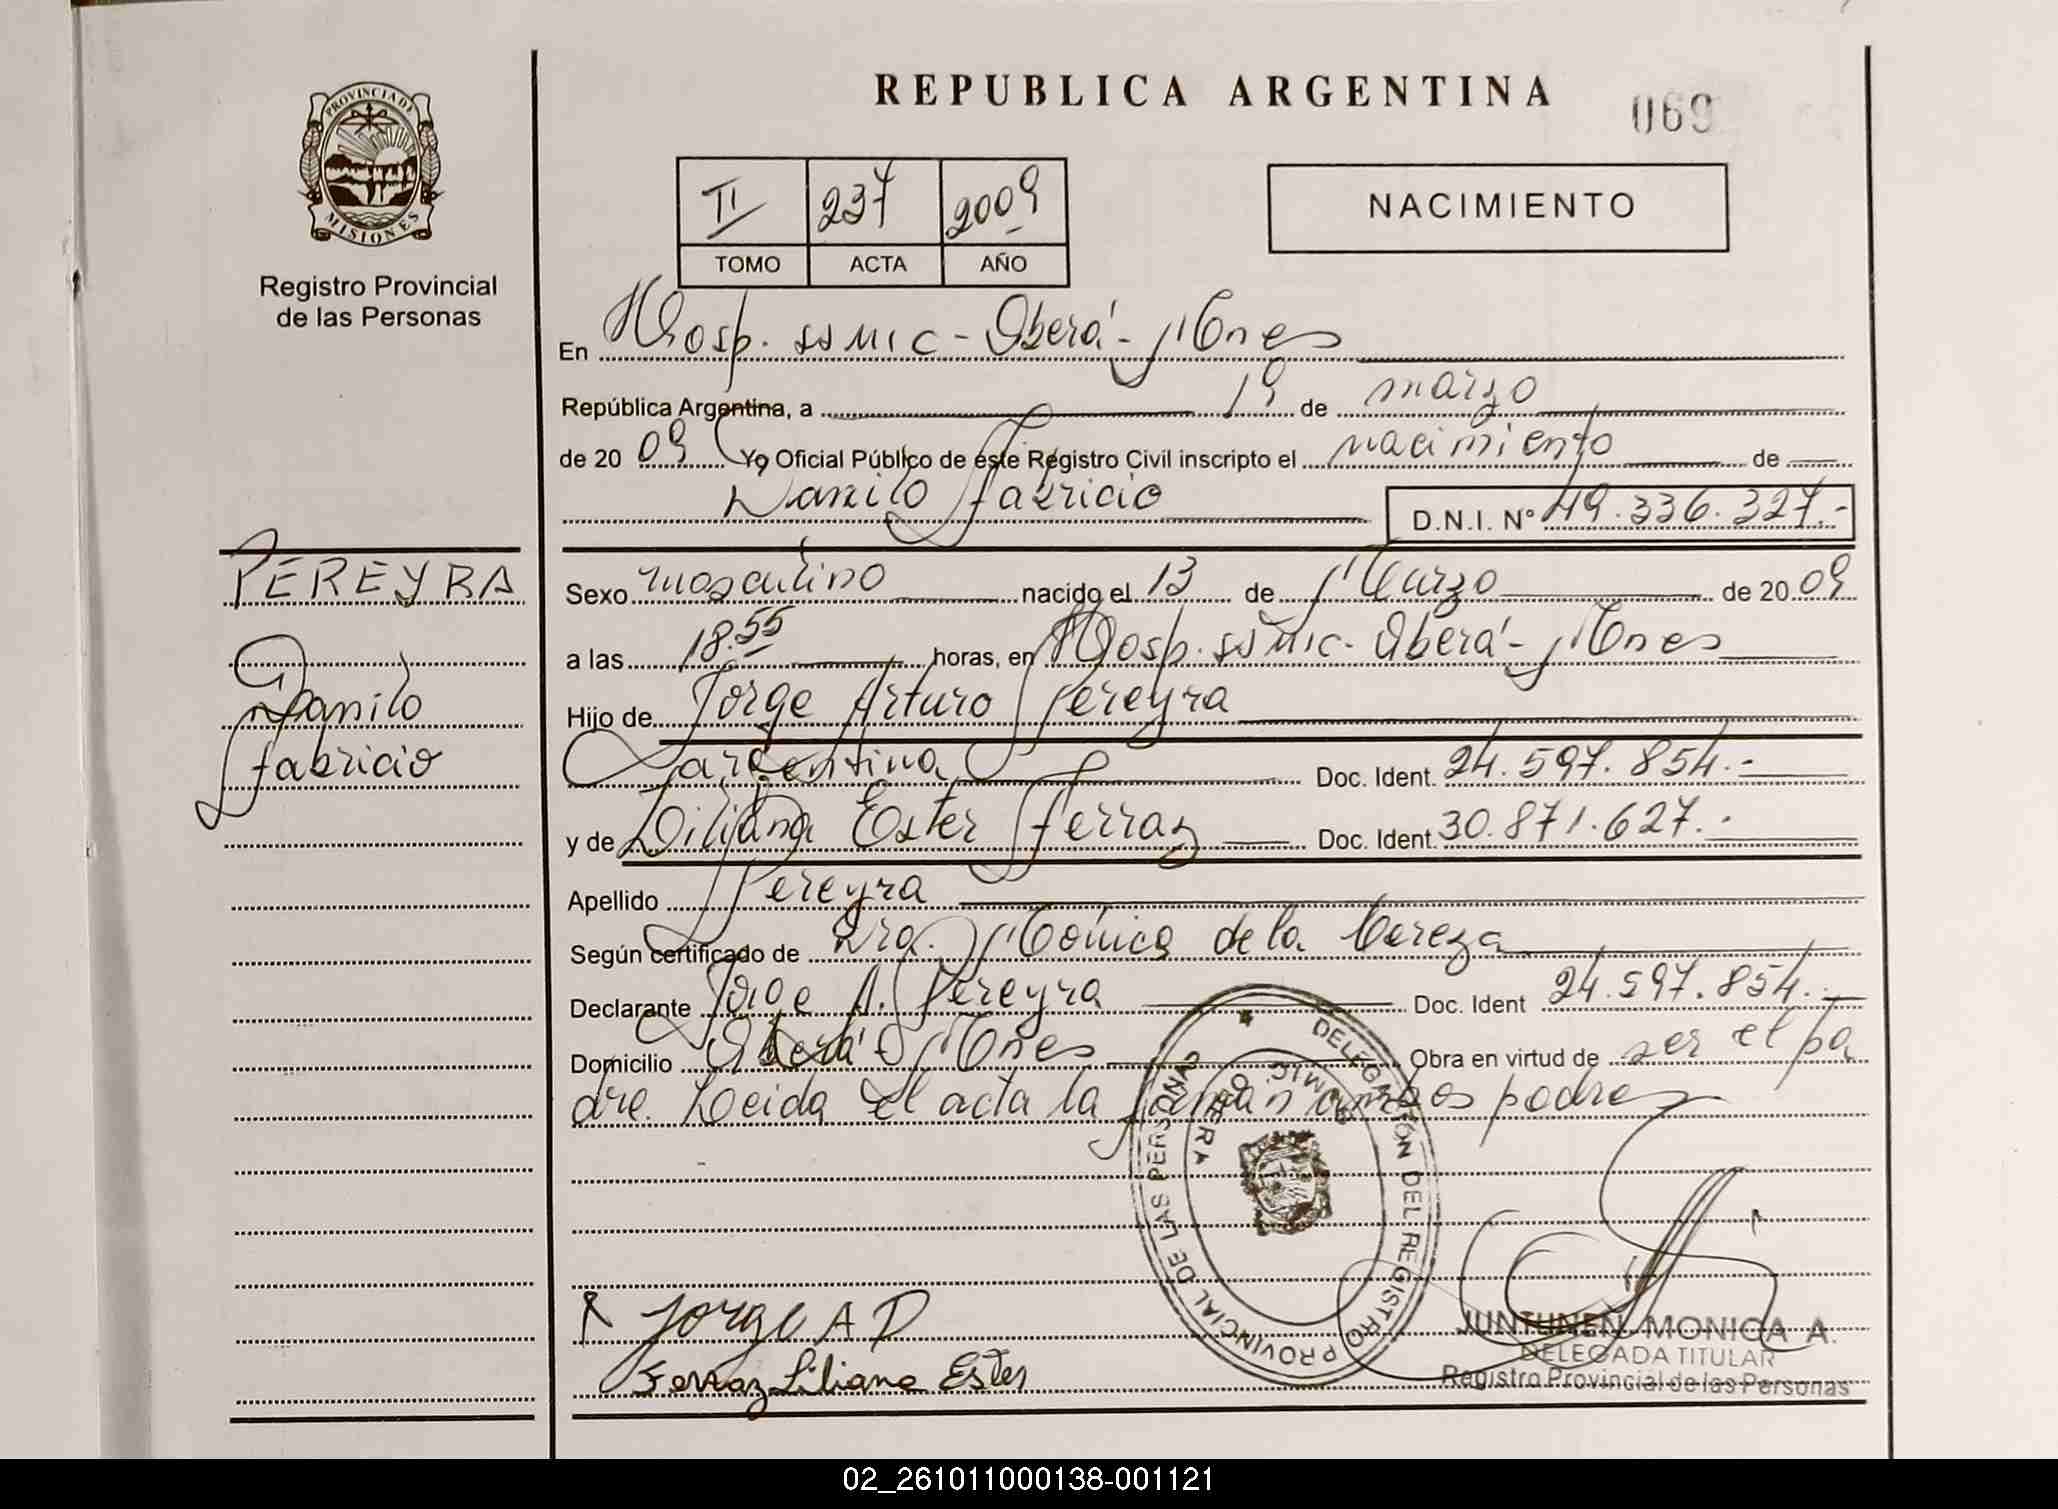 REPUBLICA ARGENTINA
069
PROVINCIA DE
MISIONES
Registro Provincial
de las Personas
II 237 2009
TOMO ACTA AÑO
NACIMIENTO
En Hosp. SSMIC - Oberá - Mnes
República Argentina, a 19 de marzo
de 2009 Yo Oficial Público de este Registro Civil inscripto el nacimiento de
Danilo Fabricio D.N.I. Nº 49.336.327.-
PEREYRA
Danilo
Fabricio
Sexo masculino nacido el 13 de Marzo de 2009
a las 18.55 horas, en Hosp. SSMIC - Oberá - Mnes
Hijo de Jorge Arturo Pereyra
argentina Doc. Ident. 24.597.854.-
y de Liliana Ester Ferraz Doc. Ident. 30.871.627.-
Apellido Pereyra
Según certificado de Dra. Mónica de la
Declarante Jorge A. Pereyra Doc. Ident 24.597.854.-
Domicilio Oberá - Mnes Obra en virtud de ser el pa
dre. Leida el acta la firman ambos padres
DELEGACIÓN DEL REGISTRO PROVINCIAL DE LAS PERSONAS
SSMIC. OBERA
Jorge A P
Ferraz Liliana Ester
JUNTUNEN MONICA A.
DELEGADA TITULAR
Registro Provincial de las Personas
02_261011000138-001121